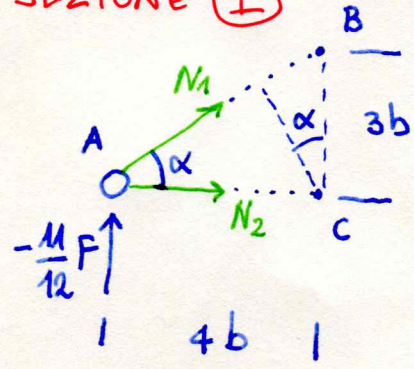 SEZIONE 1
B
N1
A
α
α
3b
N2
C
-11/12 F
4b